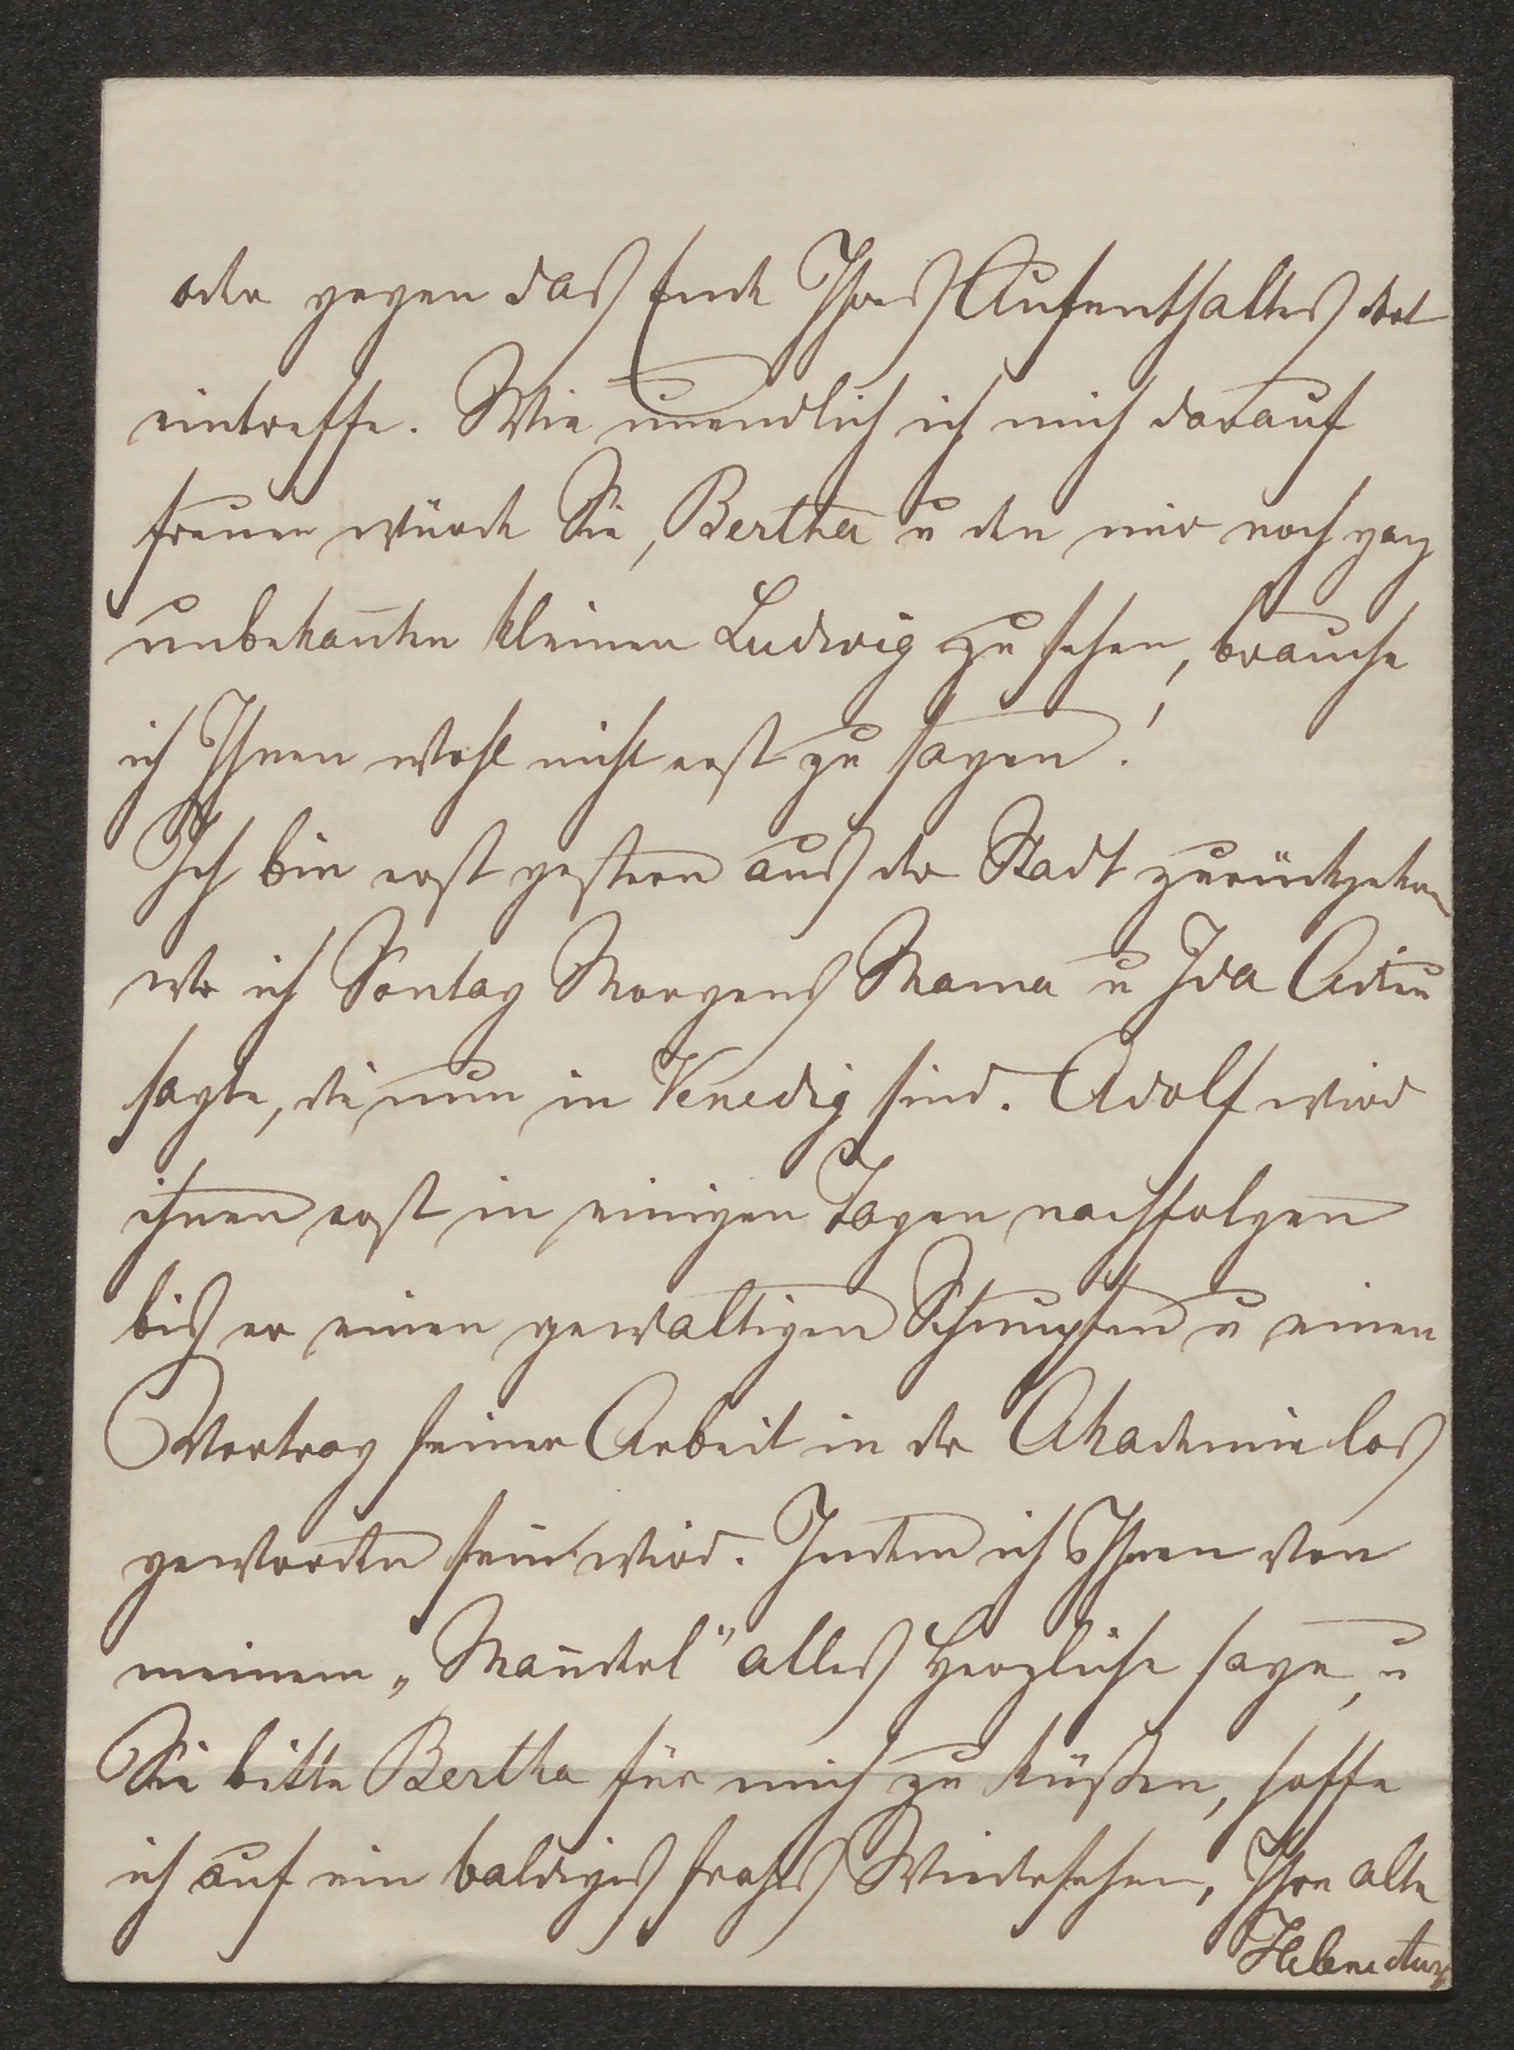 oder gegen das Ende Ihres Aufenthaltes dort
eintreffe. Wie unendlich ich mich darauf
freuen würde Sie, Bertha u den mir noch ganz
unbekan̄ten kleinen Ludwig zu sehen, brauche
ich Ihnen wohl nicht erst zu sagen!
Ich bin erst gestern aus der Stadt
wo ich Sontag Morgens Mama u Ida Adieu
sagte, die nun in Venedig sind. Adolf wird
ihnen erst in einigen Tagen nachfolgen
bis er einen gewaltigen Schnupfen u einen
Vortrag seiner Arbeit in der Akademie los
geworden sein wird. Indem ich Ihnen von
meinem „Man̄derl" alles Herzliche sage, u
Sie bitte Bertha für mich zu küßen, hoffe
ich auf ein baldiges frohes Wiedersehen, Ihre alte
Helene